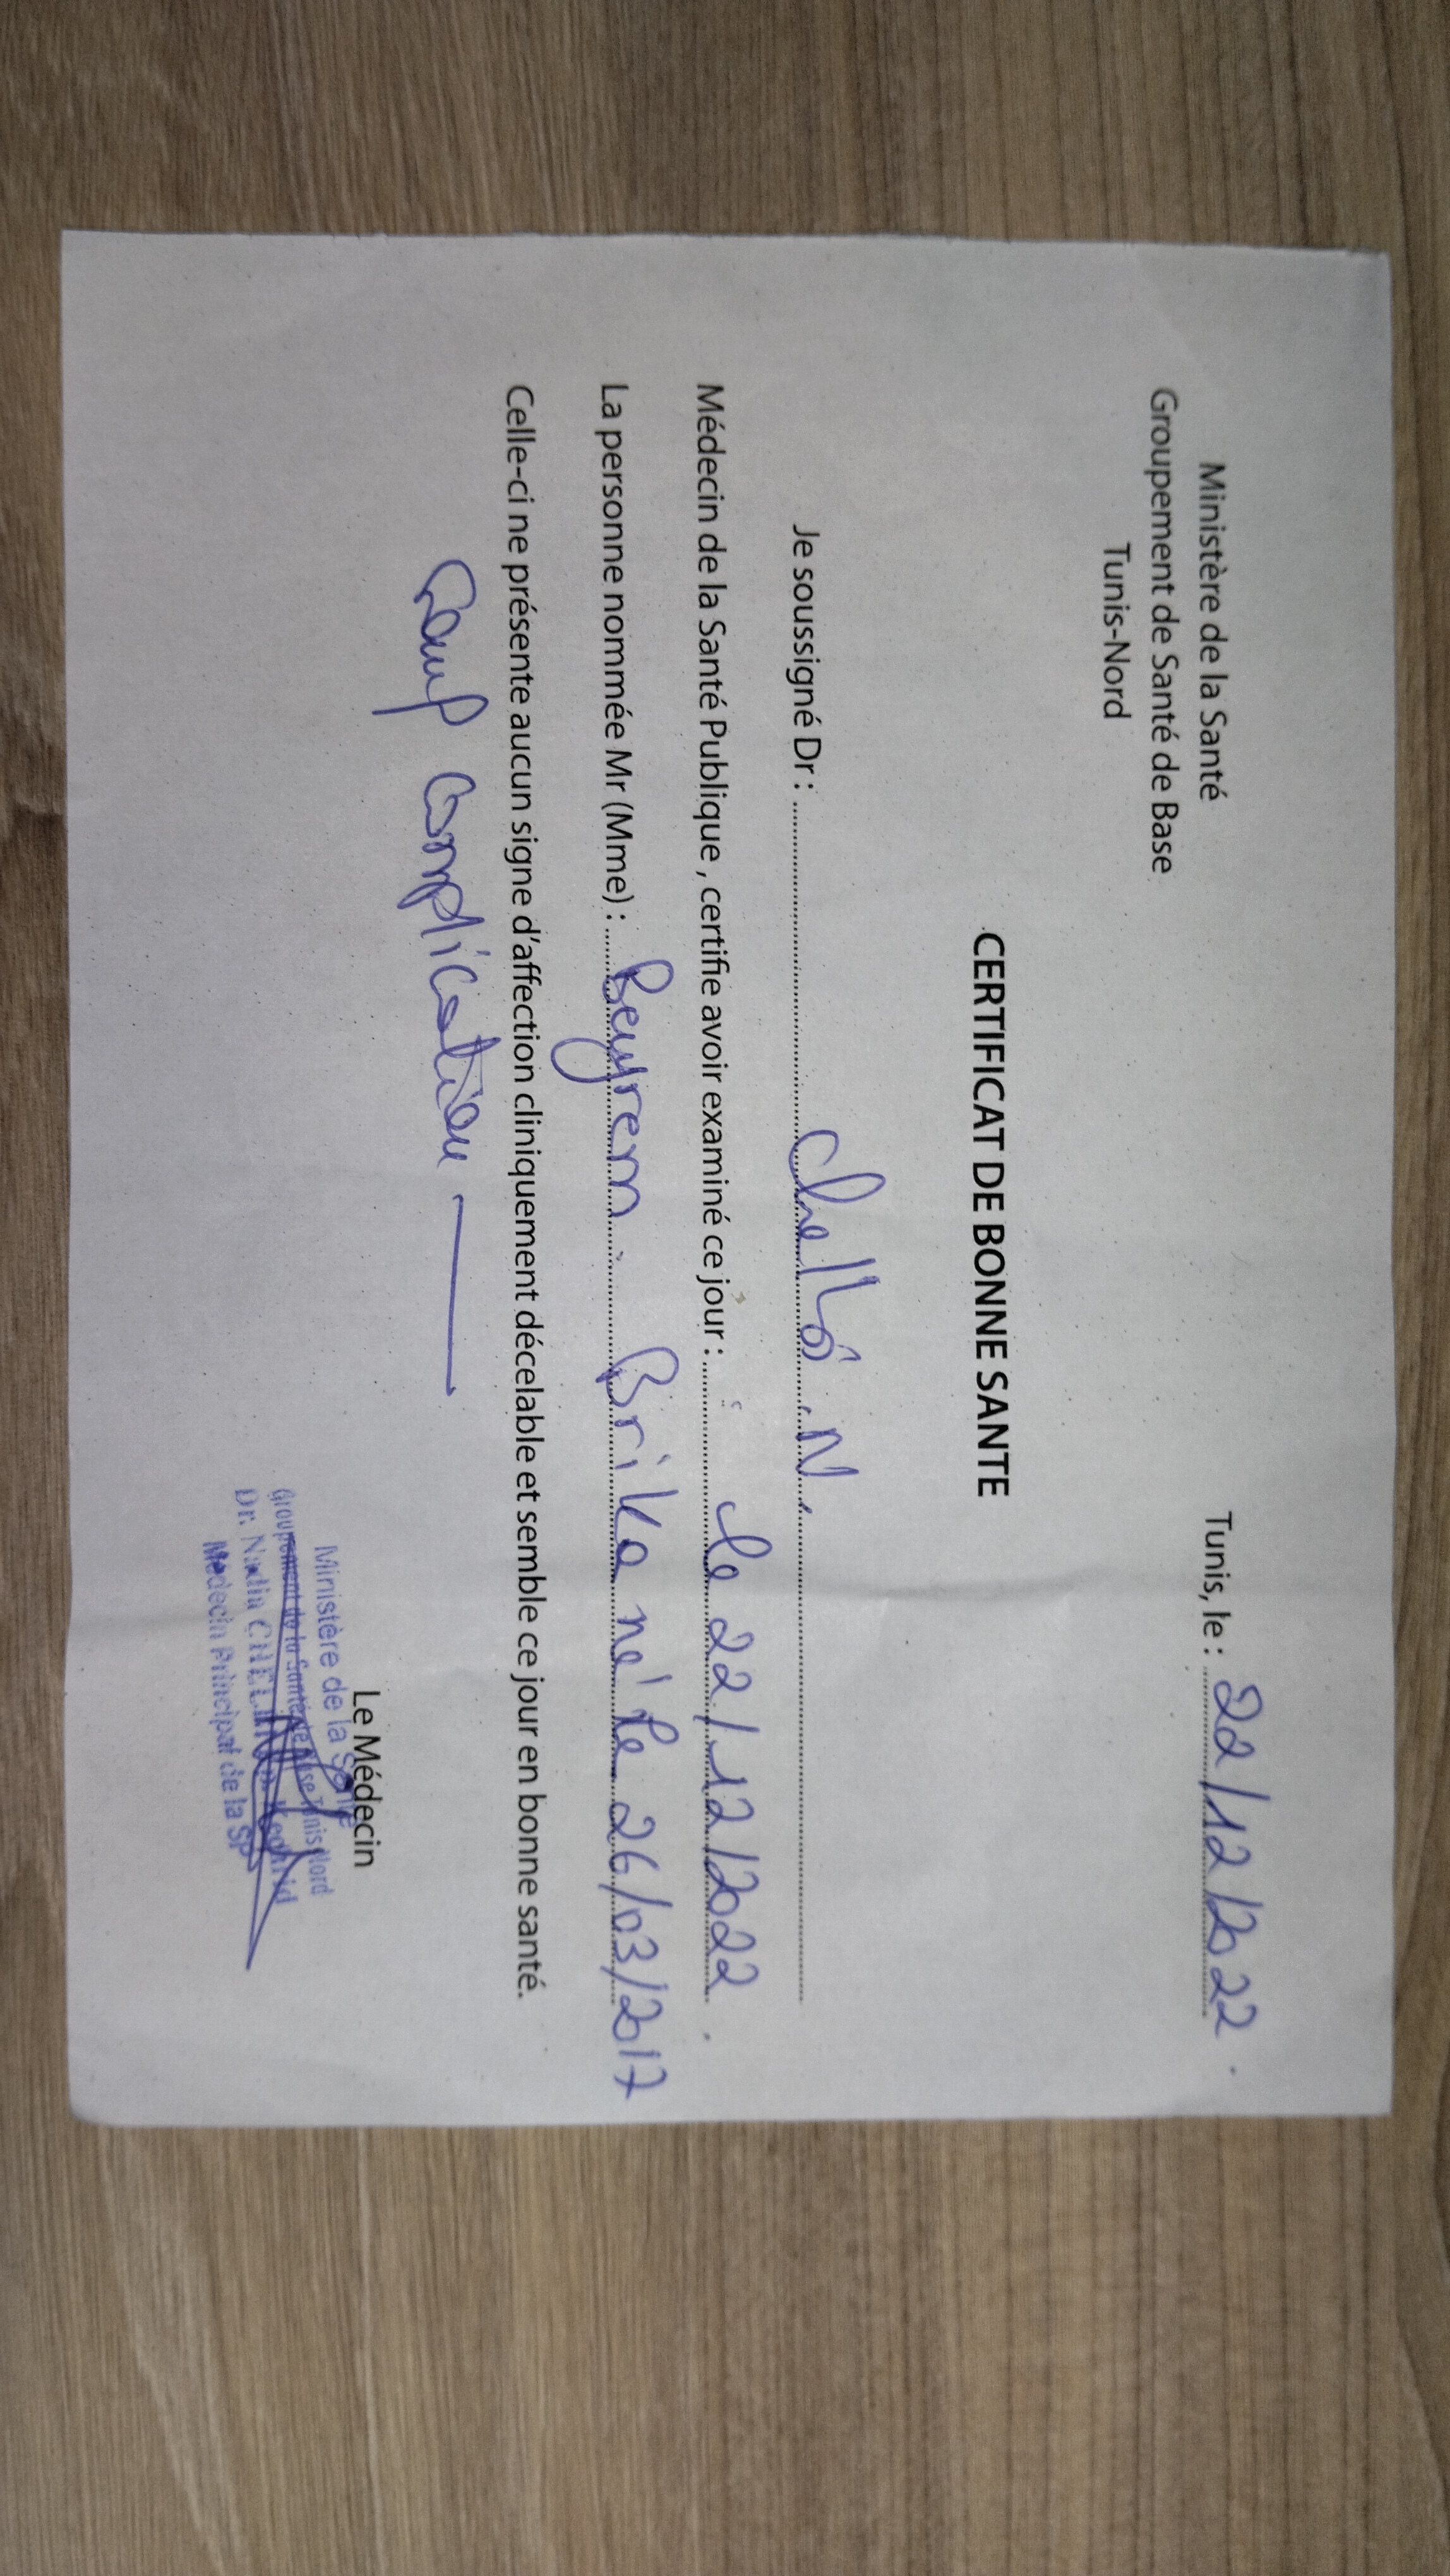 Ministère de la Santé
Groupement de Santé de Base
Tunis-Nord
Tunis, le : 22/12/2022.
CERTIFICAT DE BONNE SANTE
Je soussigné Dr : Chelbi.N.
Médecin de la Santé Publique , certifie avoir examiné ce jour : le 22/12/2022.
La personne nommée Mr (Mme) : Beyrem Brika né le 26/03/2017
Celle-ci ne présente aucun signe d'affection cliniquement décelable et semble ce jour en bonne santé.
Sauf Complication
Le Médecin
Ministère de la Santé
Groupement de la Santé de Base Tunis Nord
Dr. Nadia
Médecin Principal de la SP